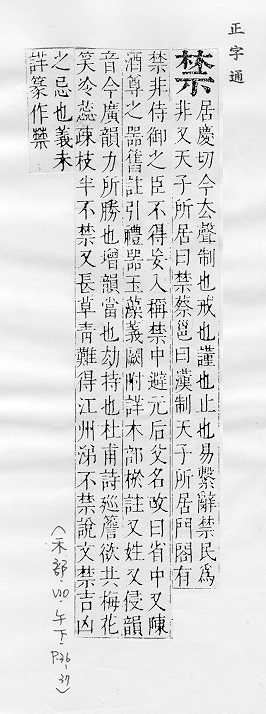 正字通
禁 居慶切今去聲制也戒也謹也止也易繫辭禁民爲
非又天子所居曰禁蔡邕曰漢制天子所居門閤有
禁非侍御之臣不得妄入稱禁中避元后父名改曰省中又陳
酒尊之器舊註引禮器玉藻義闕附詳木部棜註又姓又侵韻
音今廣韻力所勝也增韻當也劫持也杜甫詩巡簷欲共梅花
笑冷蕊疎枝半不禁又長草靑難得江州涕不禁說文禁吉凶
之忌也義未
詳篆作禁
(禾部.V10.午下.P36-37)